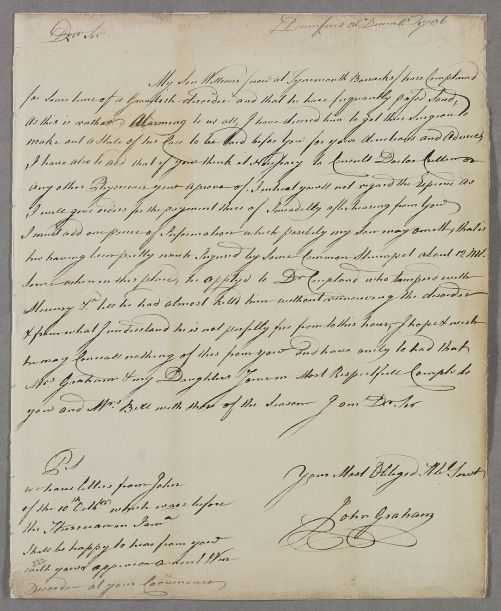 Dumfries 31 Decembr 1786
Dear Sir
My Son William (now at Tynemouth Barracks) have Complaind
for some time of a Gravelish disorder and that he have frequently passd Sand,
As this is rather Alarming to us all, I have desired him to get the Surgeon to
make out a State of his Case to be laid before you for your directions and Advice,
I have also to add that if you think it necessary to Consult Doctor Cullen or
any other Physician your approve of, I intreat you'll not regard the Expence as
I will give orders for the payment there of Immediatly after hearing from you
I must add one peice of Information which possibly my Son may omitt, that is
his having been pretty much Injured by Some Common Strumpet about 12 Mts.
Since when in this place, he applyed to Dr Coupland who tampord with
Mercury &c till he had almost killd him without removeing the disorder
& from what I understand he is not perfectly free from to this hour, I hope & wish
he may Conceall nothing of this from you And have only to add that
Mrs Graham & my Daughters Joine in Most Respectfull Complts to
you and Mrs Bell with those of the Season I am Dr Sir
Your Most Obliged Hble Servt
John Graham
PS
we have letters from John
of the 10th Octbr which was before
the Hurricane in Jama
I shall be happy to hear from you
with your oppinion anent Wm
Disorder at your Conveniency